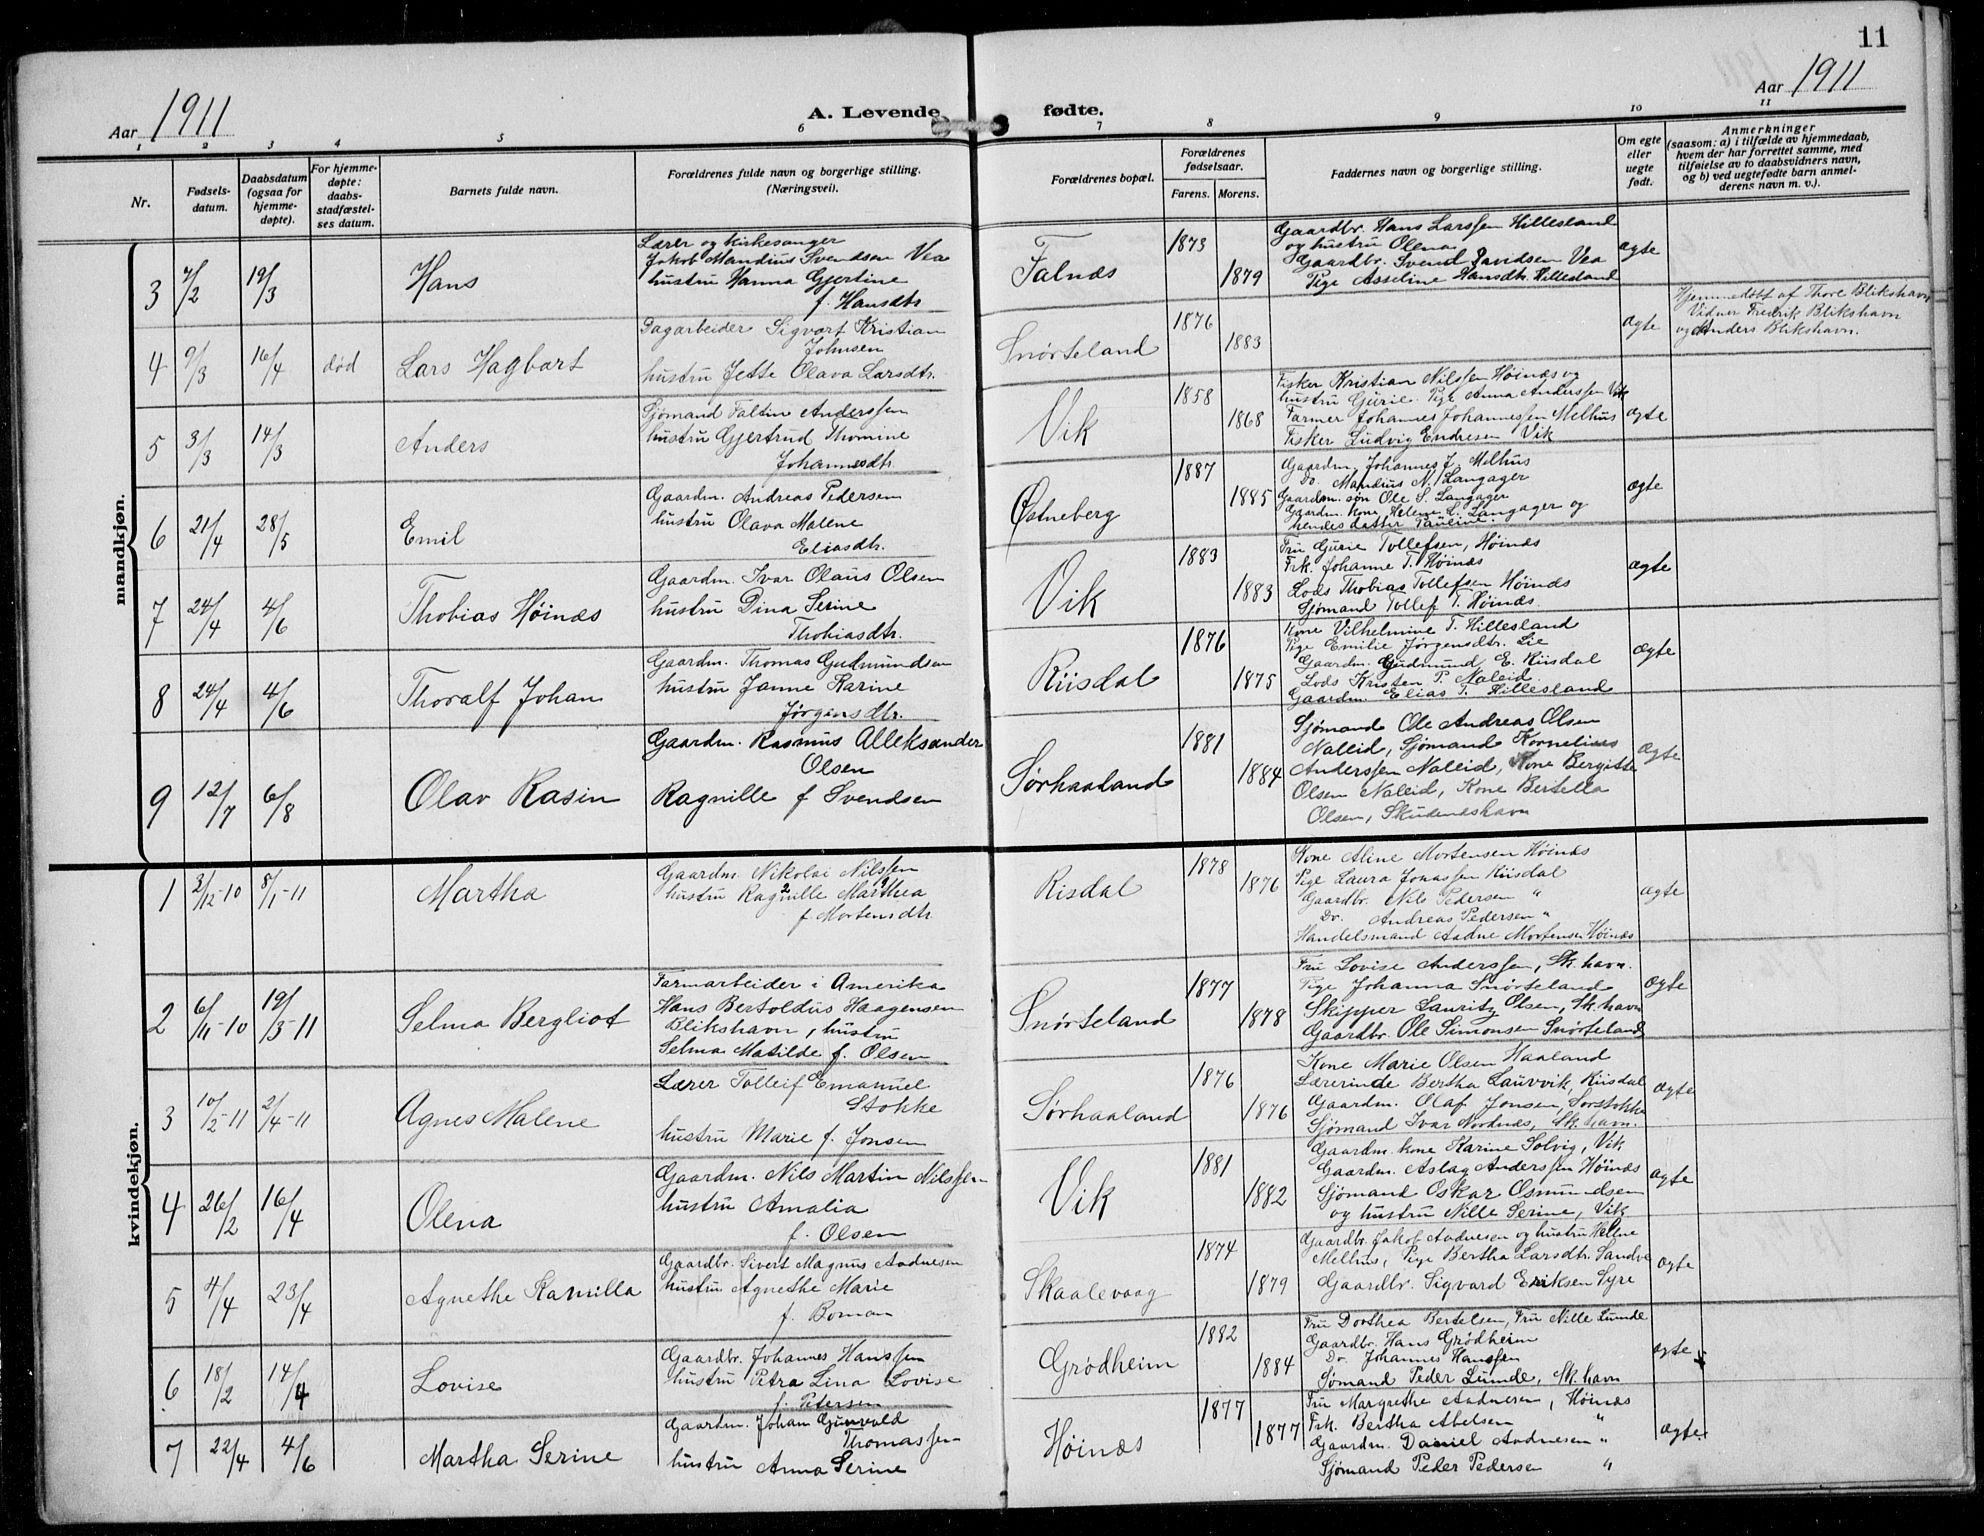 11
Aar 1911
A. Levende fødte.
Aar 1911
1 2 3 4 5 6 7 8 9 10 11
Nr.
Fødsels-
datum.
Daabsdatum
(ogsaa for
hjemme-
døpte).
For hjemme-
døpte:
daabs-
stadfæstel-
ses datum.
Barnets fulde navn.
Forældrenes fulde navn og borgerlige stilling.
(Næringsvei).
Forældrenes bopæl.
Forældrenes
fødselsaar.
Farens. Morens.
Faddernes navn og borgerlige stilling.
Om egte
eller
uegte
født.
Anmerkninger
(saasom: a) i tilfælde av hjemmedaab,
hvem der har forrettet samme, med
tilføielse av to daabsvidners navn,
og b) ved uegtefødte barn anmel-
derens navn m. v.).
mandkjøn.
3 7/2 19/3 Hans
Lærer og kirkesanger
Jakob Mandius Svendsen Vea
hustru Hanna Gjertine
f. Hansdtr
Falnæs 1873 1879
Gaardbr. Hans Larssen Hillesland
og hustru Olena
Gaardbr. Svend Davidsen Vea
Pige Asseline Hansdtr. Hillesland
ægte
4 9/3 16/4 død Lars Hagbart
Dagarbeider Sigvart Kristian
Johnsen
hustru Jette Olava Larsdtr.
Snørteland 1876 1883
ægte
Hjemmedøbt af Thore Blikshavn
Vidner Fredrik Blikshavn
og Anders Blikshavn.
5 3/3 14/3 Anders
Sjømand Faltin Anderssen
hustru Gjertrud Thomine
Johannesdtr.
Vik 1858 1868
Fisker Kristian Nilssen Høinæs og
hustru Gurie. Pige Anna Anderssen Vik
Farmer Johannes Johannessen Melhus
Fisker Ludvig Endresen Vik
ægte
6 21/4 28/5 Emil
Gaardm. Andreas Pedersen
hustru Olava Malene
Eliasdtr.
Østneberg 1887 1885
Gaardm. Johannes J. Melhus
Do. Mandius N. Langager
Gaardm. søn Ole S. Langager
Gaardm. kone Helene L. Langager og
hendes datter Pauline.
ægte
7 24/4 4/6 Thobias Høinæs
Gaardm. Ivar Olaus Olsen
hustru Dina Serine
Thobiasdtr.
Vik 1883 1883
Fru Gurie Tollefsen, Høinæs
Frk. Johanne T. Høinæs
Lods Thobias Tollefsen Høinæs
Sjømand Tollef T. Høinæs.
ægte
8 24/4 4/6 Thoralf Johan
Gaardm. Thomas Gudmundsen
hustru Janne Karine
Jørgensdtr.
Riisdal 1876 1875
Kone Vilhelmine T. Hillesland
Pige Emilie Jørgensdtr. Lie
Gaardm. Gudmund E. Riisdal
Lods Kristen P. Naleid
Gaardm. Elias T. Hillesland
ægte
9 12/7 6/8 Olav Rasin
Gaardm. Rasmus Alleksander
Olsen
Ragnille f Svendsen
Sørhaaland 1881 1884
Sjømand Ole Andreas Olsen
Naleid, Sjømand Kornelius
Anderssen Naleid, Kone Bergitte
Olsen Naleid, Kone Bertella
Olsen, Skudeneshavn
ægte
kvindekjøn.
1 3/12-10 8/1-11 Martha
Gaardm Nikolai Nilssen
hustru Ragnille Marthea
f Mortensdtr
Risdal 1878 1876
Kone Aline Mortensen Høinæs
Pige Laura Jonassen Riisdal
Gaardbr. Nils Pedersen "
Do. Andreas Pedersen "
Handelsmand Aadne Mortensen Høinæs
ægte
2 6/11-10 19/3-11 Selma Bergliot
Farmarbeider i Amerika
Hans Bertoldus Haagensen
Blikshavn, hustru
Selma Matilde f. Olsen
Snørteland 1877 1878
Fru Lovise Anderssen, Sk. havn.
Pige Johanna Snørteland
Skipper Lauritz Olsen, Sk. havn
Gaardbr. Ole Simonsen Snørteland
ægte
3 10/2-11 2/4-11 Agnes Malene
Lærer Tolleif Emanuel
Stokke
hustru Marie f. Jonsen
Sørhaaland 1876 1876
Kone Marie Olsen Haaland
Lærerinde Bertha Lauvvik, Riisdal
Gaardm. Olaf Jonsen, Sorstokke
Sjømand Ivar Nordnæs, Sk. havn.
ægte
4 26/2 16/4 Olena
Gaardm. Nils Martin Nilssen
hustru Amalia
f. Olsen
Vik 1881 1882
Gaardm. kone Karine Solvig, Vik
Gaardm. Aslag Anderssen Høinæs
Sjømand Oskar Osmundsen
og hustru Nille Serine, Vik
ægte
5 4/4 23/4 Agnethe Kamilla
Gaardbr. Sivert Magnus Aadnesen
hustru Agnethe Marie
f. Boman
Skaalevaag 1874 1879
Gaardbr. Jakob Aadnesen og hustru Helene
Melhus, Pige Bertha Larsdtr. Sandve
Gaardbr. Sigvard Eriksen Syre
ægte
6 18/2 14/4 Lovise
Gaardbr. Johannes Hanssen
hustru Petra Lina Lovise
f. Petersen
Grødheim 1882 1884
Fru Dorthea Bertelsen, Fru Nille Lunde
Gaardbr. Hans Grødheim
Do. Johannes Hanssen
Sømand Peder Lunde, Sk. havn
ægte
7 22/4 4/6 Martha Serine
Gaardm. Johan Gunvald
Thomassen
hustru Anna Serine
Høinæs 1877 1877
Fru Margrethe Aadnesen, Høinæs
Frk. Bertha Abelsen "
Gaardm. Daniel Aadnesen "
Sjømand Peder Pedersen "
ægte